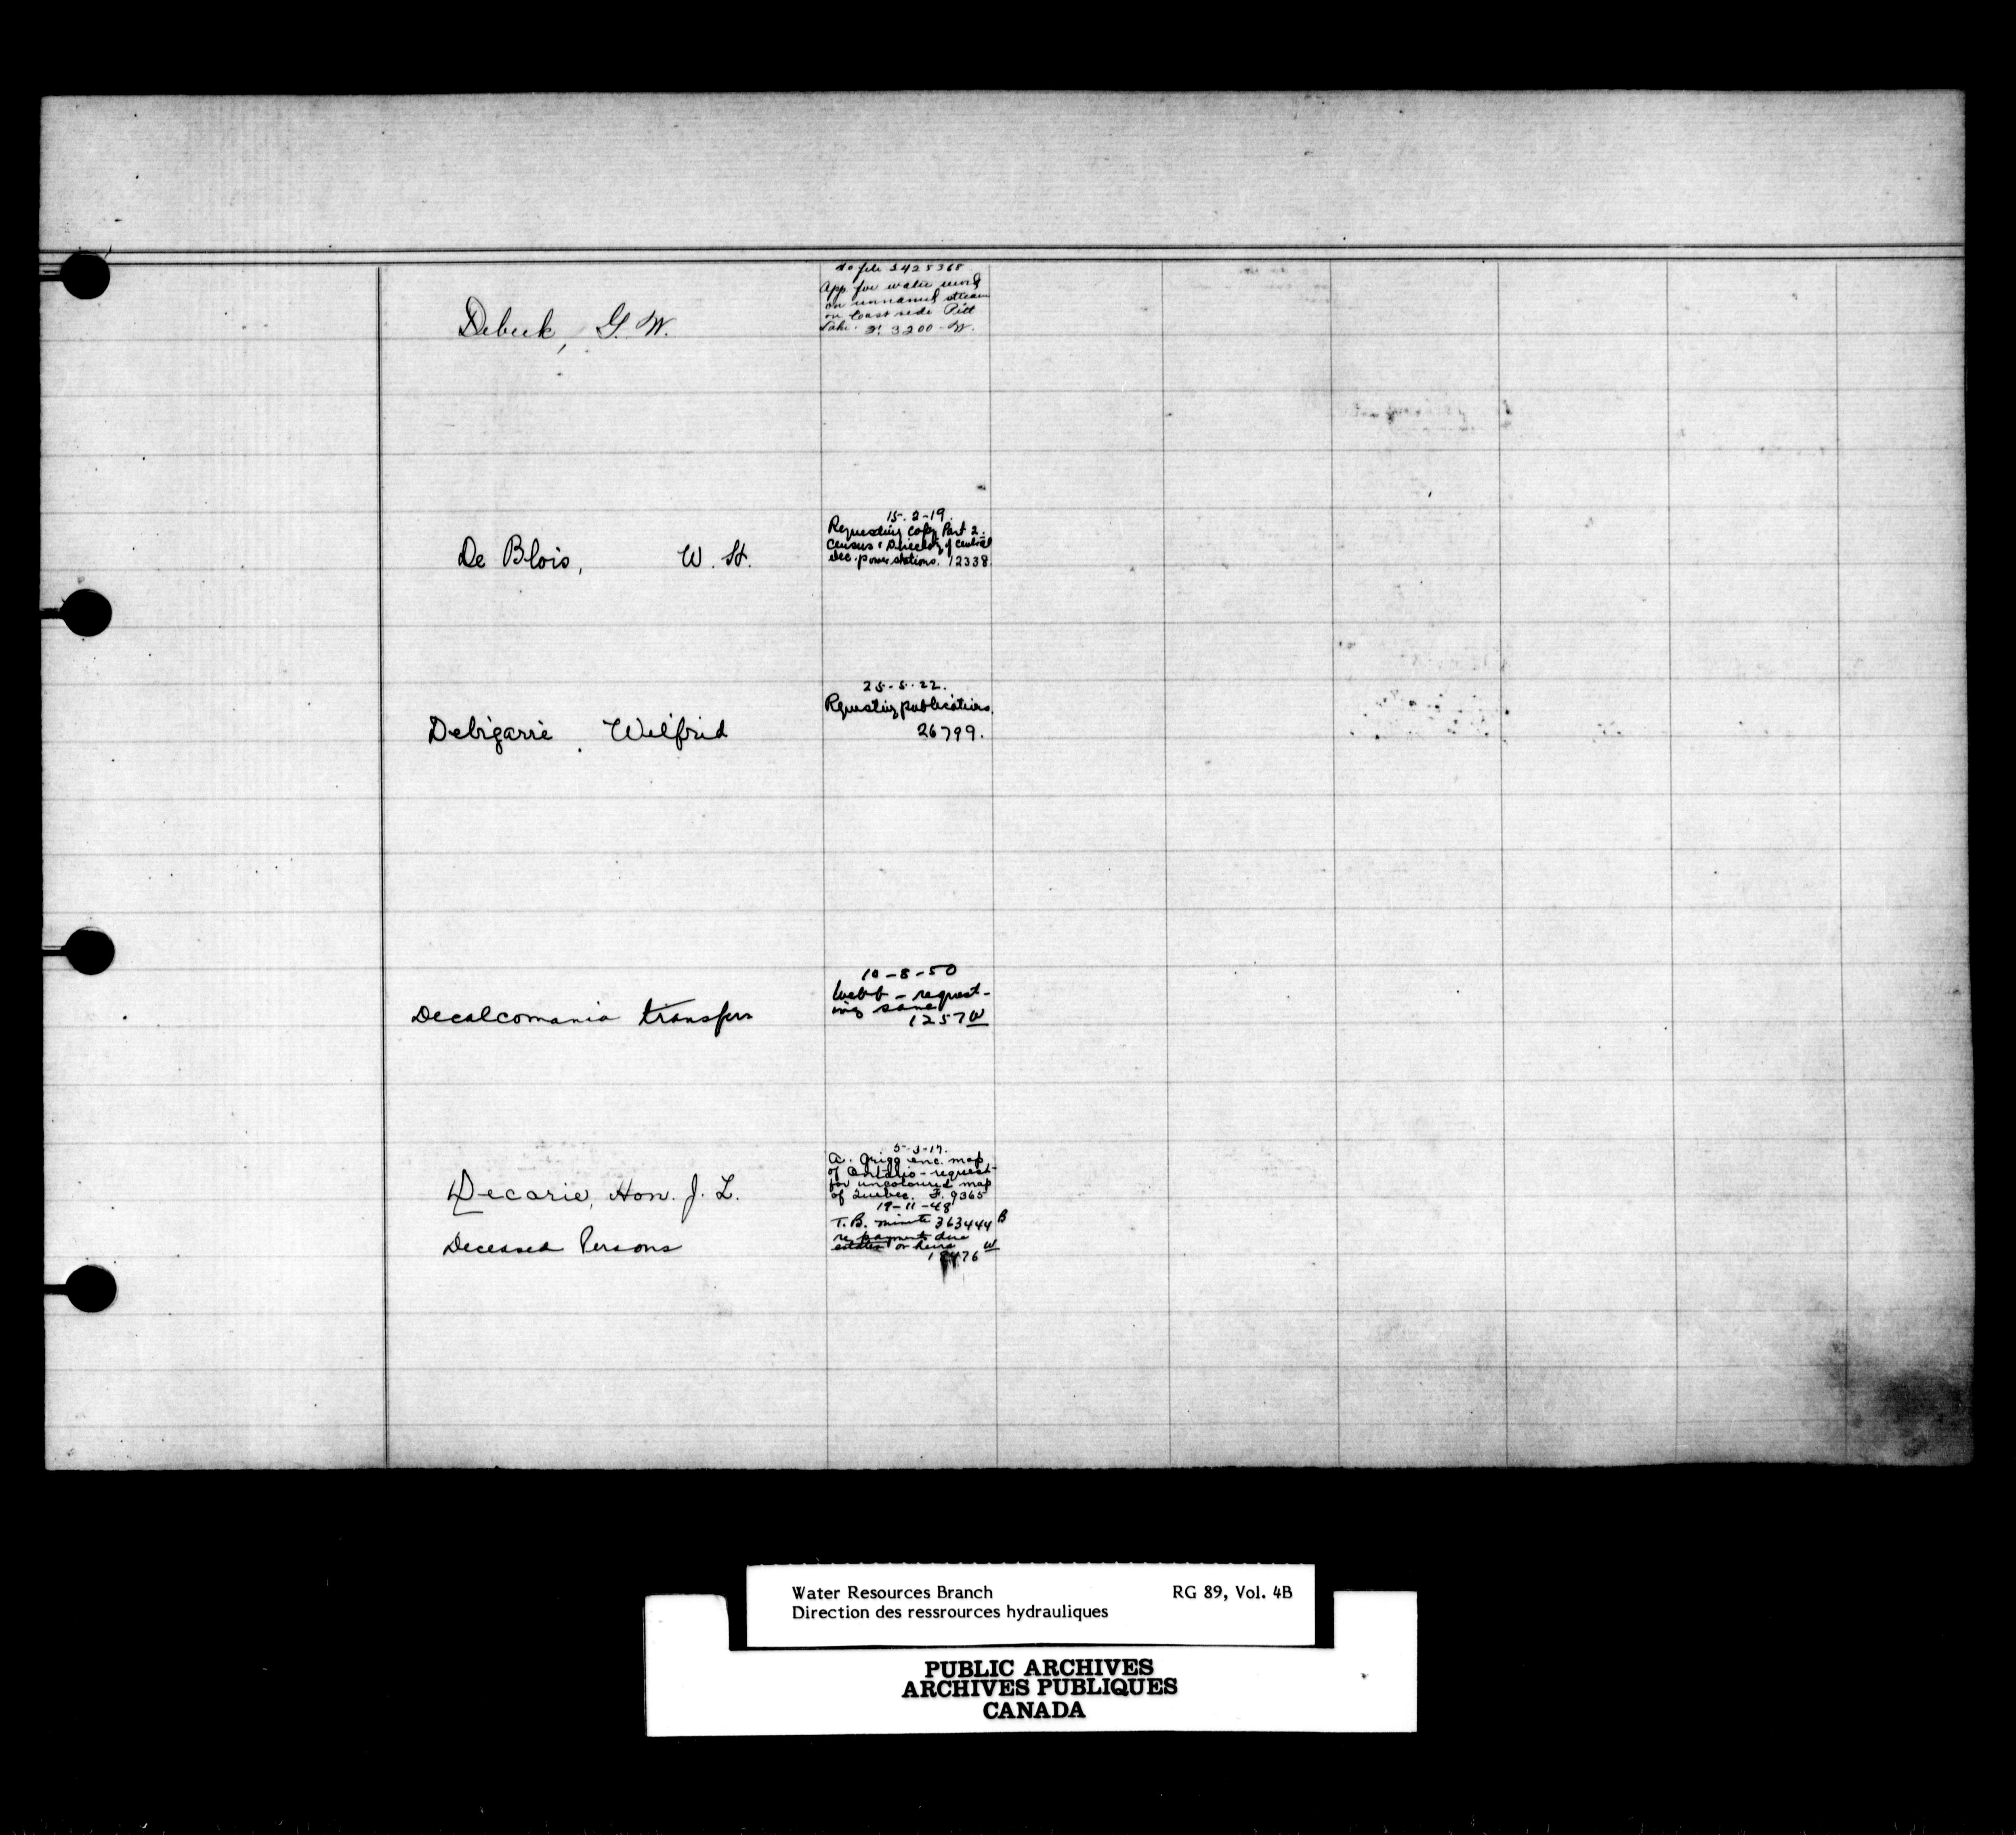 to file 2425368
App. for water send
on unnamed stream
on East side Pitt
Lake. F. 3200-W.
Debeck, G. W.
15-2-19.
Requesting copy Part 2.
Census & Directory of Central
elec. power stations. 12338
De Blois, W. H.
25-5-22.
Requesting publications.
26799.
Debigarré, Wilfrid
10-8-50
Webb - request-
ing same
1257 W
Decalcomania transfers
5-3-17.
A. Grigg enc. map
of Ontario - request
for uncoloured map
of Quebec. F. 9365
Decarie, Hon. J. L.
19-11-48
T. B. minute 363444 B
re payments due
estates or heirs
Deceased Persons
Water Resources Branch RG 89, Vol. 4B
Direction des ressrources hydrauliques
PUBLIC ARCHIVES
ARCHIVES PUBLIQUES
CANADA